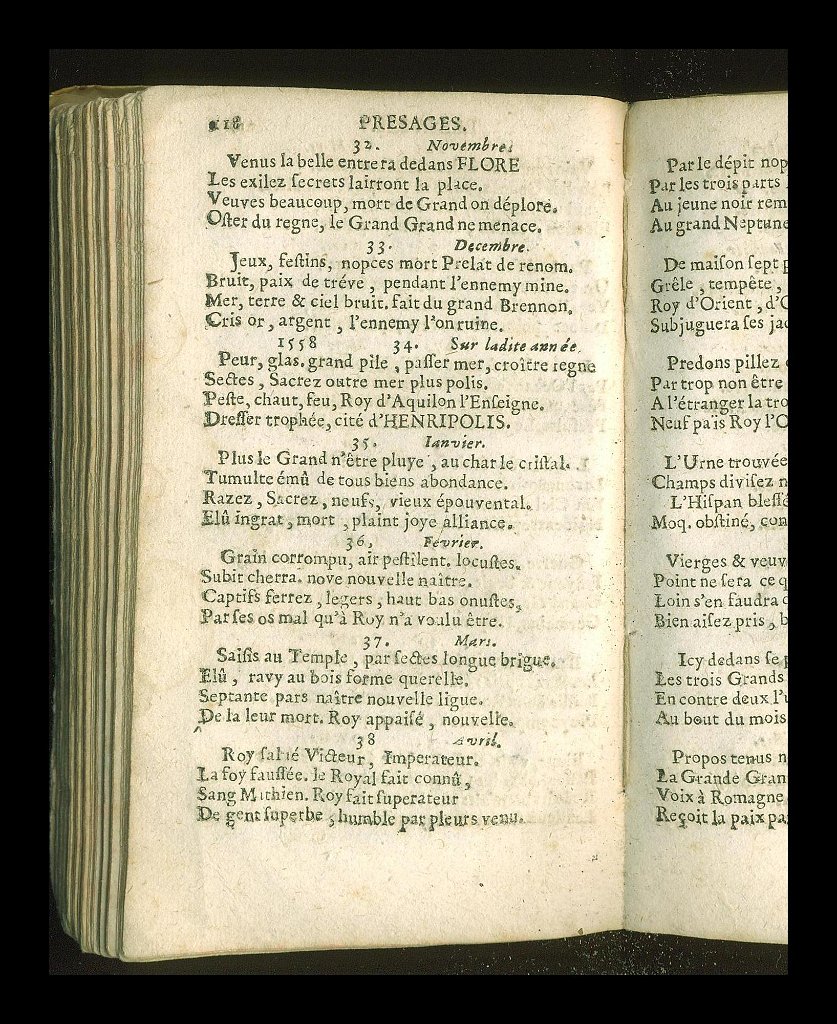 118 PRESAGES.
32. Novembre.
Venus la belle entrera dedans FLORE
Les exilez ſecrets lairront la place.
Veuves beaucoup, mort de Grand on déplore.
Oſter du regne, le Grand Grand ne menace.
33. Decembre.
Jeux, feſtins, nopces mort Prelat de renom.
Bruit, paix de tréve, pendant l'ennemy mine.
Mer, terre & ciel bruit. fait du grand Brennon.
Cris or, argent, l'ennemy l'on ruine.
1558 34. Sur ladite année
Peur, glas. grand pile, paſſer mer, croître regne
Sectes, Sacrez outre mer plus polis.
Peſte, chaut, feu, Roy d'Aquilon l'Enſeigne.
Dreſſer trophée, cité d'HENRIPOLIS.
35. Ianvier.
Plus le Grand n'être pluye, au char le criſtal.
Tumulte émû de tous biens abondance.
Razez, Sacrez, neufs, vieux épouvental.
Elû ingrat, mort, plaint joye alliance.
36. Février.
Grain corrompu, air peſtilent. locuſtes.
Subit cherra. nove nouvelle naître.
Captifs ferrez, legers, haut bas onuſtes,
Par ſes os mal qu'à Roy n'a voulu être.
37. Mars.
Saiſis au Temple, par ſectes longue brigue.
Elû, ravy au bois forme querelle.
Septante pars naître nouvelle ligue.
De la leur mort. Roy appaiſé, nouvelle.
38 Avril.
Roy Victeur, Imperateur.
La foy fauſſée. le Royal fait connû,
Sang Mathien. Roy fait ſuperateur
De gent ſuperbe, humble par pleurs venu.
Par le dépit nop
Par les trois parts
Au jeune noir rem
Au grand Neptune
De maiſon ſept p
Grêle, tempête,
Roy d'Orient, d'O
Subjuguera ſes jad
Predons pillez
Par trop non être
A l'étranger la tro
Neuf païs Roy l'O
L'Urne trouvée
Champs diviſez n
L'Hiſpan bleſſé
Moq. obſtiné, con
Vierges & veuv
Point ne ſera ce q
Loin s'en faudra
Bien aiſez pris, b
Icy dedans ſe
Les trois Grands
En contre deux l'u
Au bout du mois
Propos tenus n
La Grande Gran
Voix à Romagne
Reçoit la paix pa